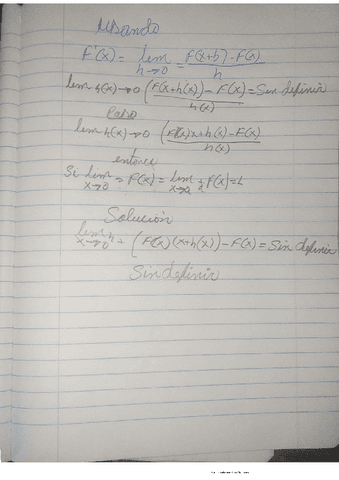 Usando
F'(x) = lim h→0 = F(x+h) - F(x) / h
lim h(x)→0 (F(x+h(x)) - F(x) / h(x) = Sin definir
Paso
lim h(x)→0 (F(x)x+h(x) - F(x) / h(x)
entonces
Si lim x→0 = F(x) = lim F(x) = L
Solución
lim h x→0 = (F(x)(x+h(x)) - F(x) = Sin definir
Sin definir